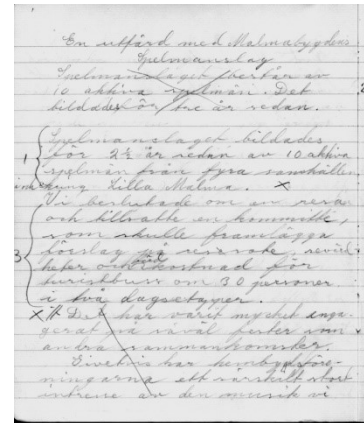 En utfärd med Malmabygdens
Spelmanslag
Spelmanslaget består av
10 aktiva spelmän. Det
bildades för tre år sedan.
1 Spelmanslaget bildades
för 2½ år sedan av 10 aktiva
spelmän från fyra samhällen
omkring Lilla Malma. x
3 Vi beslutade om en resa
och tillsatte en kommitté,
som skulle framlägga
förslag på resrutt, sevärd
heter och kostnad för
turistbuss om 30 personer
i två dagsetapper.
x Det har varit mycket enga-
gerat på såväl fester som
andra sammankomster.
Givetvis har hembygdsföre-
ningarna ett särskilt stort
intresse av den musik vi